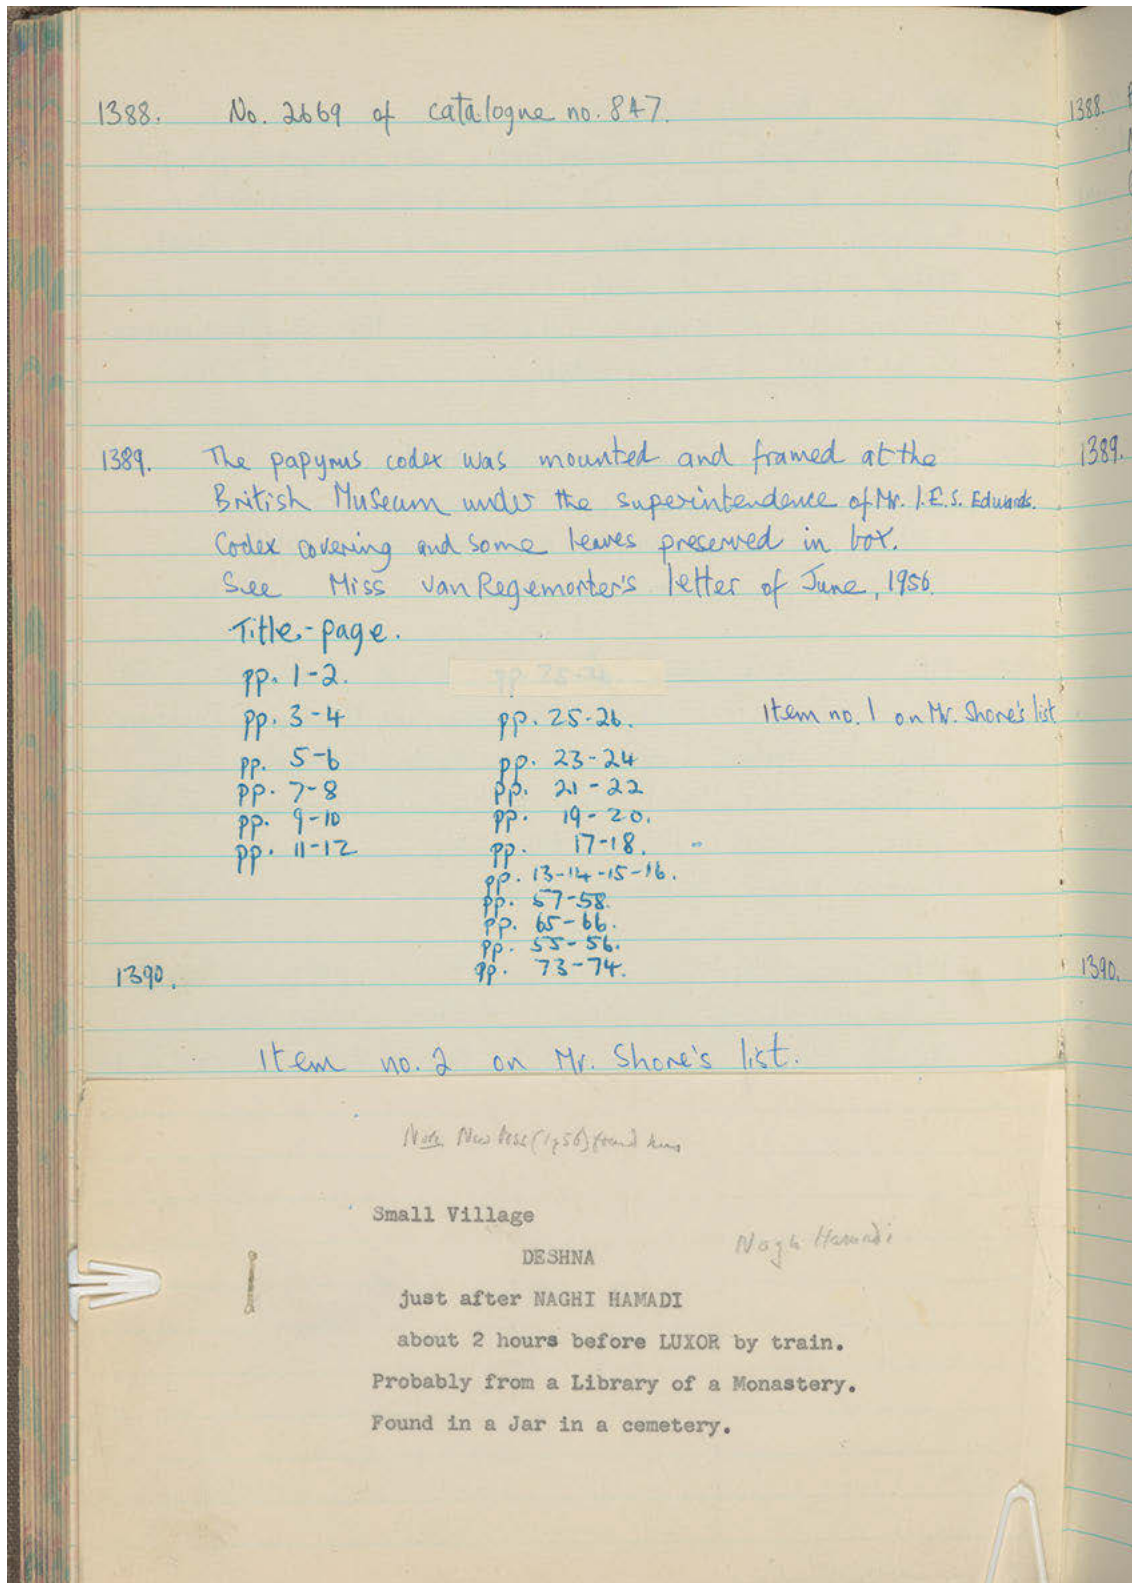 1388. No. 2669 of catalogue no. 847.
1388.
1389. The papyrus codex was mounted and framed at the
1389.
British Museum under the superintendence of Mr. I.E.S. Edwards.
Codex covering and some leaves preserved in box.
See Miss Van Regemorter's letter of June, 1956.
Title-page.
pp. 1-2.
pp. 3-4 pp. 25-26. Item no. 1 on Mr. Shore's list
pp. 5-6 pp. 23-24
pp. 7-8 pp. 21-22
pp. 9-10 pp. 19-20.
pp. 11-12 pp. 17-18.
pp. 13-14-15-16.
pp. 57-58.
pp. 65-66.
pp. 55-56.
1390. pp. 73-74.
1390.
Item no. 2 on Mr. Shore's list.
Note (1956) found
Small Village
DESHNA Nagh Hamadi
just after NAGHI HAMADI
about 2 hours before LUXOR by train.
Probably from a Library of a Monastery.
Found in a Jar in a cemetery.